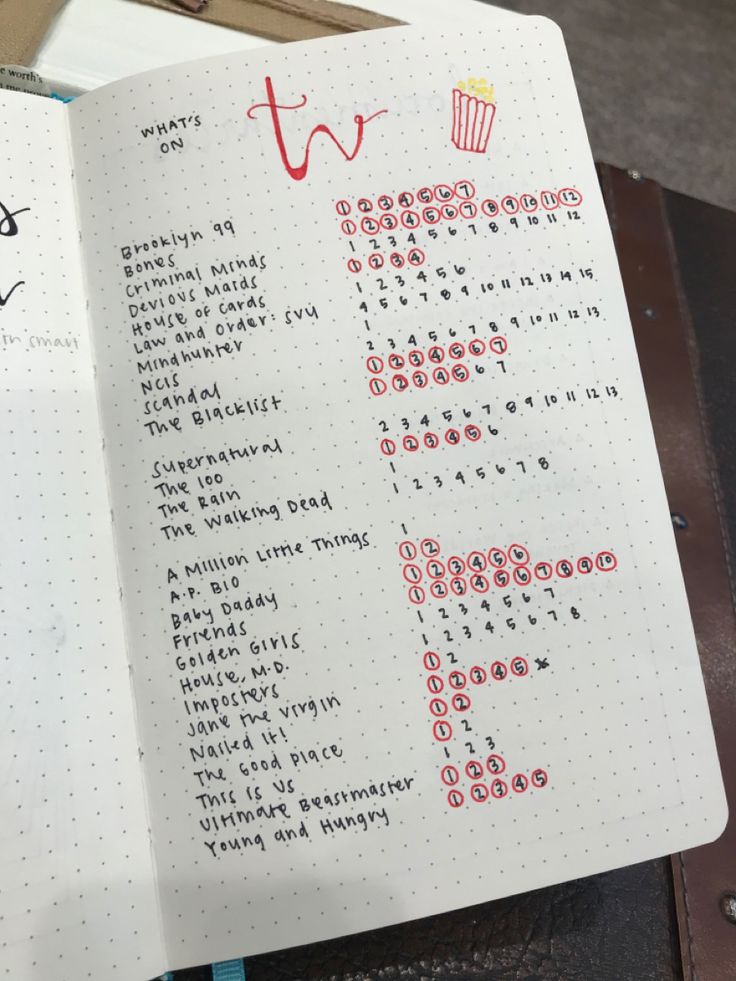 e worth's
smart
WHAT'S
ON
tv
Brooklyn 99 1 2 3 4 5 6 7
Bones 1 2 3 4 5 6 7 8 9 10 11 12
Criminal Minds 1 2 3 4 5 6 7 8 9 10 11 12
Devious Maids 1 2 3 4
House of Cards 1 2 3 4 5 6
Law and Order: SVU 4 5 6 7 8 9 10 11 12 13 14 15
Mindhunter 1
NCIS 2 3 4 5 6 7 8 9 10 11 12 13
Scandal 1 2 3 4 5 6 7
The Blacklist 1 2 3 4 5 6 7
Supernatural 2 3 4 5 6 7 8 9 10 11 12 13
The 100 1 2 3 4 5 6
The Rain 1
The Walking Dead 1 2 3 4 5 6 7 8
A Million Little Things 1
A.P. Bio 1 2
Baby Daddy 1 2 3 4 5 6
Friends 1 2 3 4 5 6 7 8 9 10
Golden Girls 1 2 3 4 5 6 7
House, M.D. 1 2 3 4 5 6 7 8
Imposters 1 2
Jane the Virgin 1 2 3 4 5
Nailed It! 1 2
The Good Place 1 2
This is Us 1 2 3
Ultimate Beastmaster 1 2 3
Young and Hungry 1 2 3 4 5